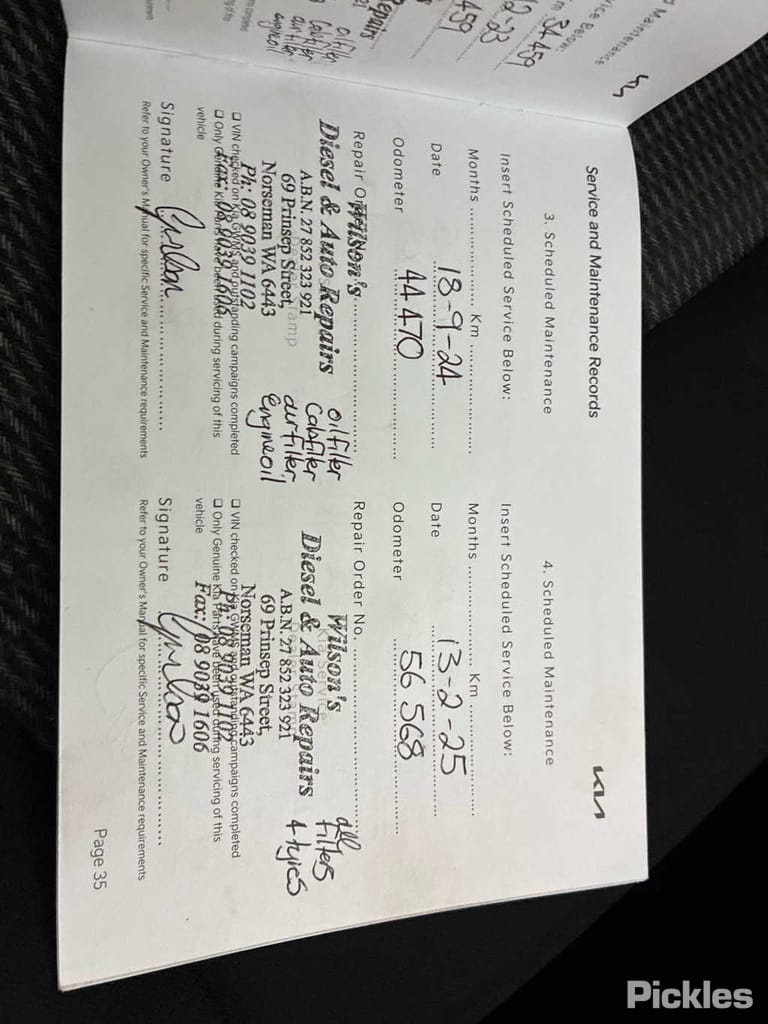 d Maintenance
ice Below:
34 459
2-23
459
epairs
oilfilter
Cabfilter
airfilter
engineoil
Service and Maintenance Records
3. Scheduled Maintenance
Insert Scheduled Service Below:
Months .................... Km ....................
Date 18-9-24
Odometer 44 470
Repair O
Wilson's
Diesel & Auto Repairs
A.B.N. 27 852 323 921
69 Prinsep Street,
Norseman WA 6443
Ph: 08 9039 1102
Fax: 08 9039 1606
oilfilter
Cabfilter
airfilter,
engineoil
☐ VIN checked on Kia GWMS and outstanding campaigns completed
☐ Only Genuine Kia Parts have been used during servicing of this
vehicle
Signature
Refer to your Owner's Manual for specific Service and Maintenance requirements
KIA
4. Scheduled Maintenance
Insert Scheduled Service Below:
Months .................... Km ....................
Date 13-2-25
Odometer 56 568
Repair Order No.
Wilson's
Diesel & Auto Repairs
A.B.N. 27 852 323 921
69 Prinsep Street,
Norseman WA 6443
Ph: 08 9039 1102
Fax: 08 9039 1606
all
filters
4 tyres
☐ VIN checked on Kia GWMS and outstanding campaigns completed
☐ Only Genuine Kia Parts have been used during servicing of this
vehicle
Signature
Refer to your Owner's Manual for specific Service and Maintenance requirements
Page 35
Pickles